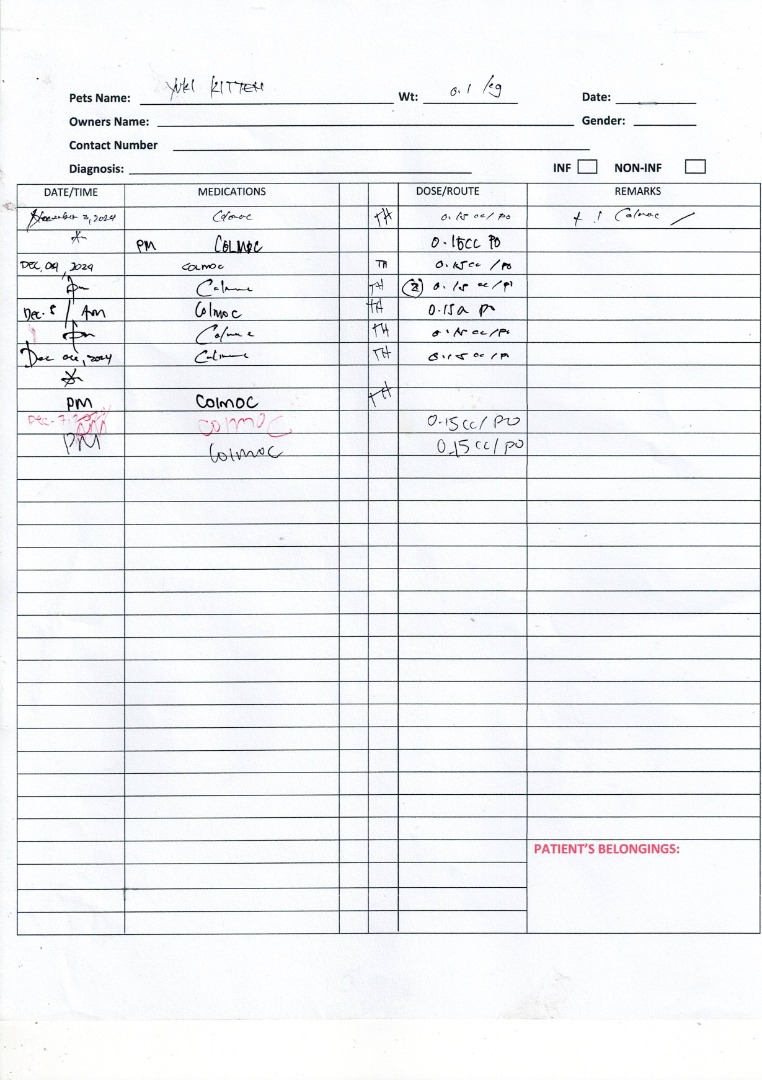 Pets Name: YUKI KITTEN Wt: 0.1 kg Date:
Owners Name: Gender:
Contact Number
Diagnosis: INF NON-INF
DATE/TIME MEDICATIONS DOSE/ROUTE REMARKS
3, 2024 Colmoc TH 0.15 cc/ po + 1 Colmoc
PM COLMOC 0.15cc PO
DEC. 04, 2024 COLMOC TH 0.15cc /po
pm Colmoc TH 2 0.15 cc/po
Dec. 5 / Am Colmoc TH 0.15 po
pm Colmoc TH 0.15cc/po
Dec 06, 2024 Colmoc TH 0.15 cc/po
PM COLMOC TH
Dec. 7, AM COLMOC 0.15cc/ PO
PM Colmoc 0.15cc/po
PATIENT'S BELONGINGS: